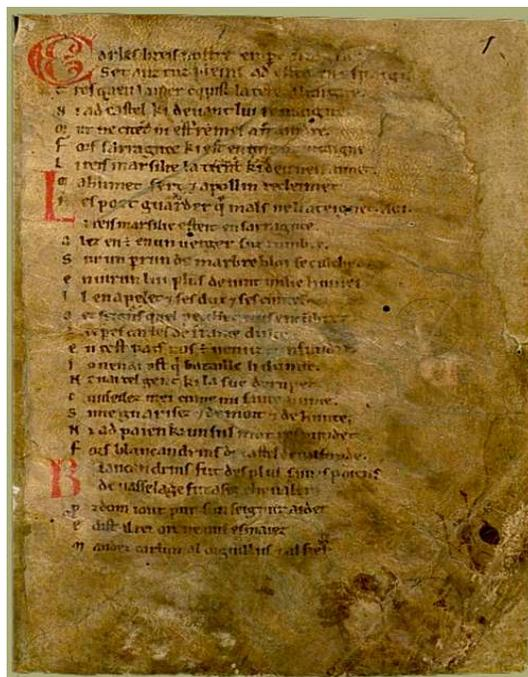 Carles li reis nostre emperere
Set anz tuz pleins ad estet en espaigne
Tresquen la mer cunquist la tere altaigne
N i ad castel ki deuant lui remaigne
M ur ne citet ni est remes a fraindre
F ors sarraguce ki est en une muntaigne
L i reis marsilie la tient ki deu nen aimet
M ahumet sert ⁊ apollin recleimet
N es poet guarder q̄ mals ne li ateignet. Aoi.
L i reis marsilie esteit en sarraguce.
A lez en ē en un uerger suz lumbre.
S ur un perrun de marbre bloi se culched
E nuirun lui plus de uint milie humes
I l en apelet ⁊ ses dux ⁊ ses cuntes
O ez seignurs quel pecchet nus encumbret
carles de france dulce
E n cest pais nos ē uenuz cunfundre
I o nen ai ost q̄ bataille li dunne.
N ai tel gent ki la sue derumpet
C unseilez mei cume mi saiue hume.
S i me guarisez ⁊ de mort ⁊ de hunte.
N i ad paien ki un sul mot respundet
F ors blancandrins de castel de ualfunde.
B lancandrins fut des plus saiues paiens
De uasselage fut asez cheualer
P rozdom i out pur sun seignur aider
E dist al rei ore ne uus esmaiez
M andez carlun al orguillus ⁊ al fier